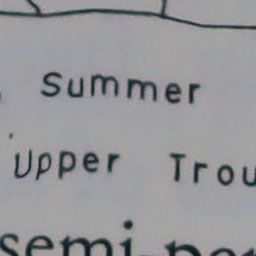 Summer
Upper Trou
semi-per